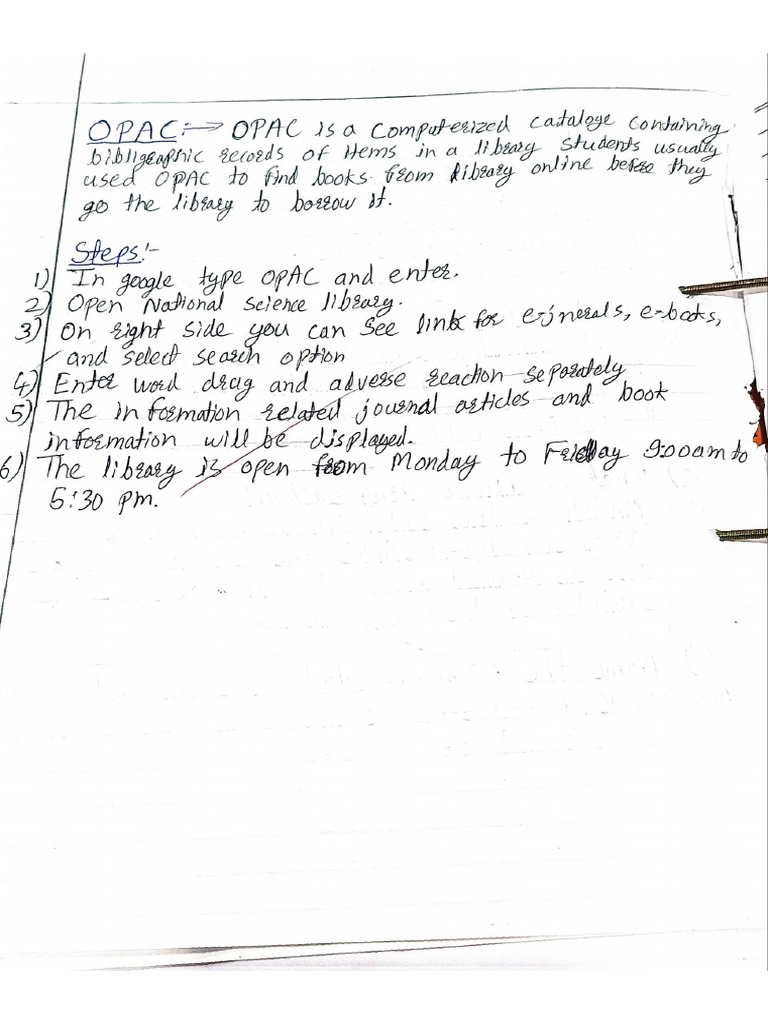 OPAC:→ OPAC is a computerized cataloge containing
bibligraphic records of items in a library students usually
used OPAC to find books from library online before they
go the library to borrow it.
Steps:-
1) In google type OPAC and enter.
2) Open National science library.
3) On right side you can see link for e-jnerals, e-books,
and select search option
4) Enter word drag and adverse reaction separately
5) The information related journal articles and book
information will be displayed.
6) The library is open from Monday to Friday 9:00am to
5:30 pm.